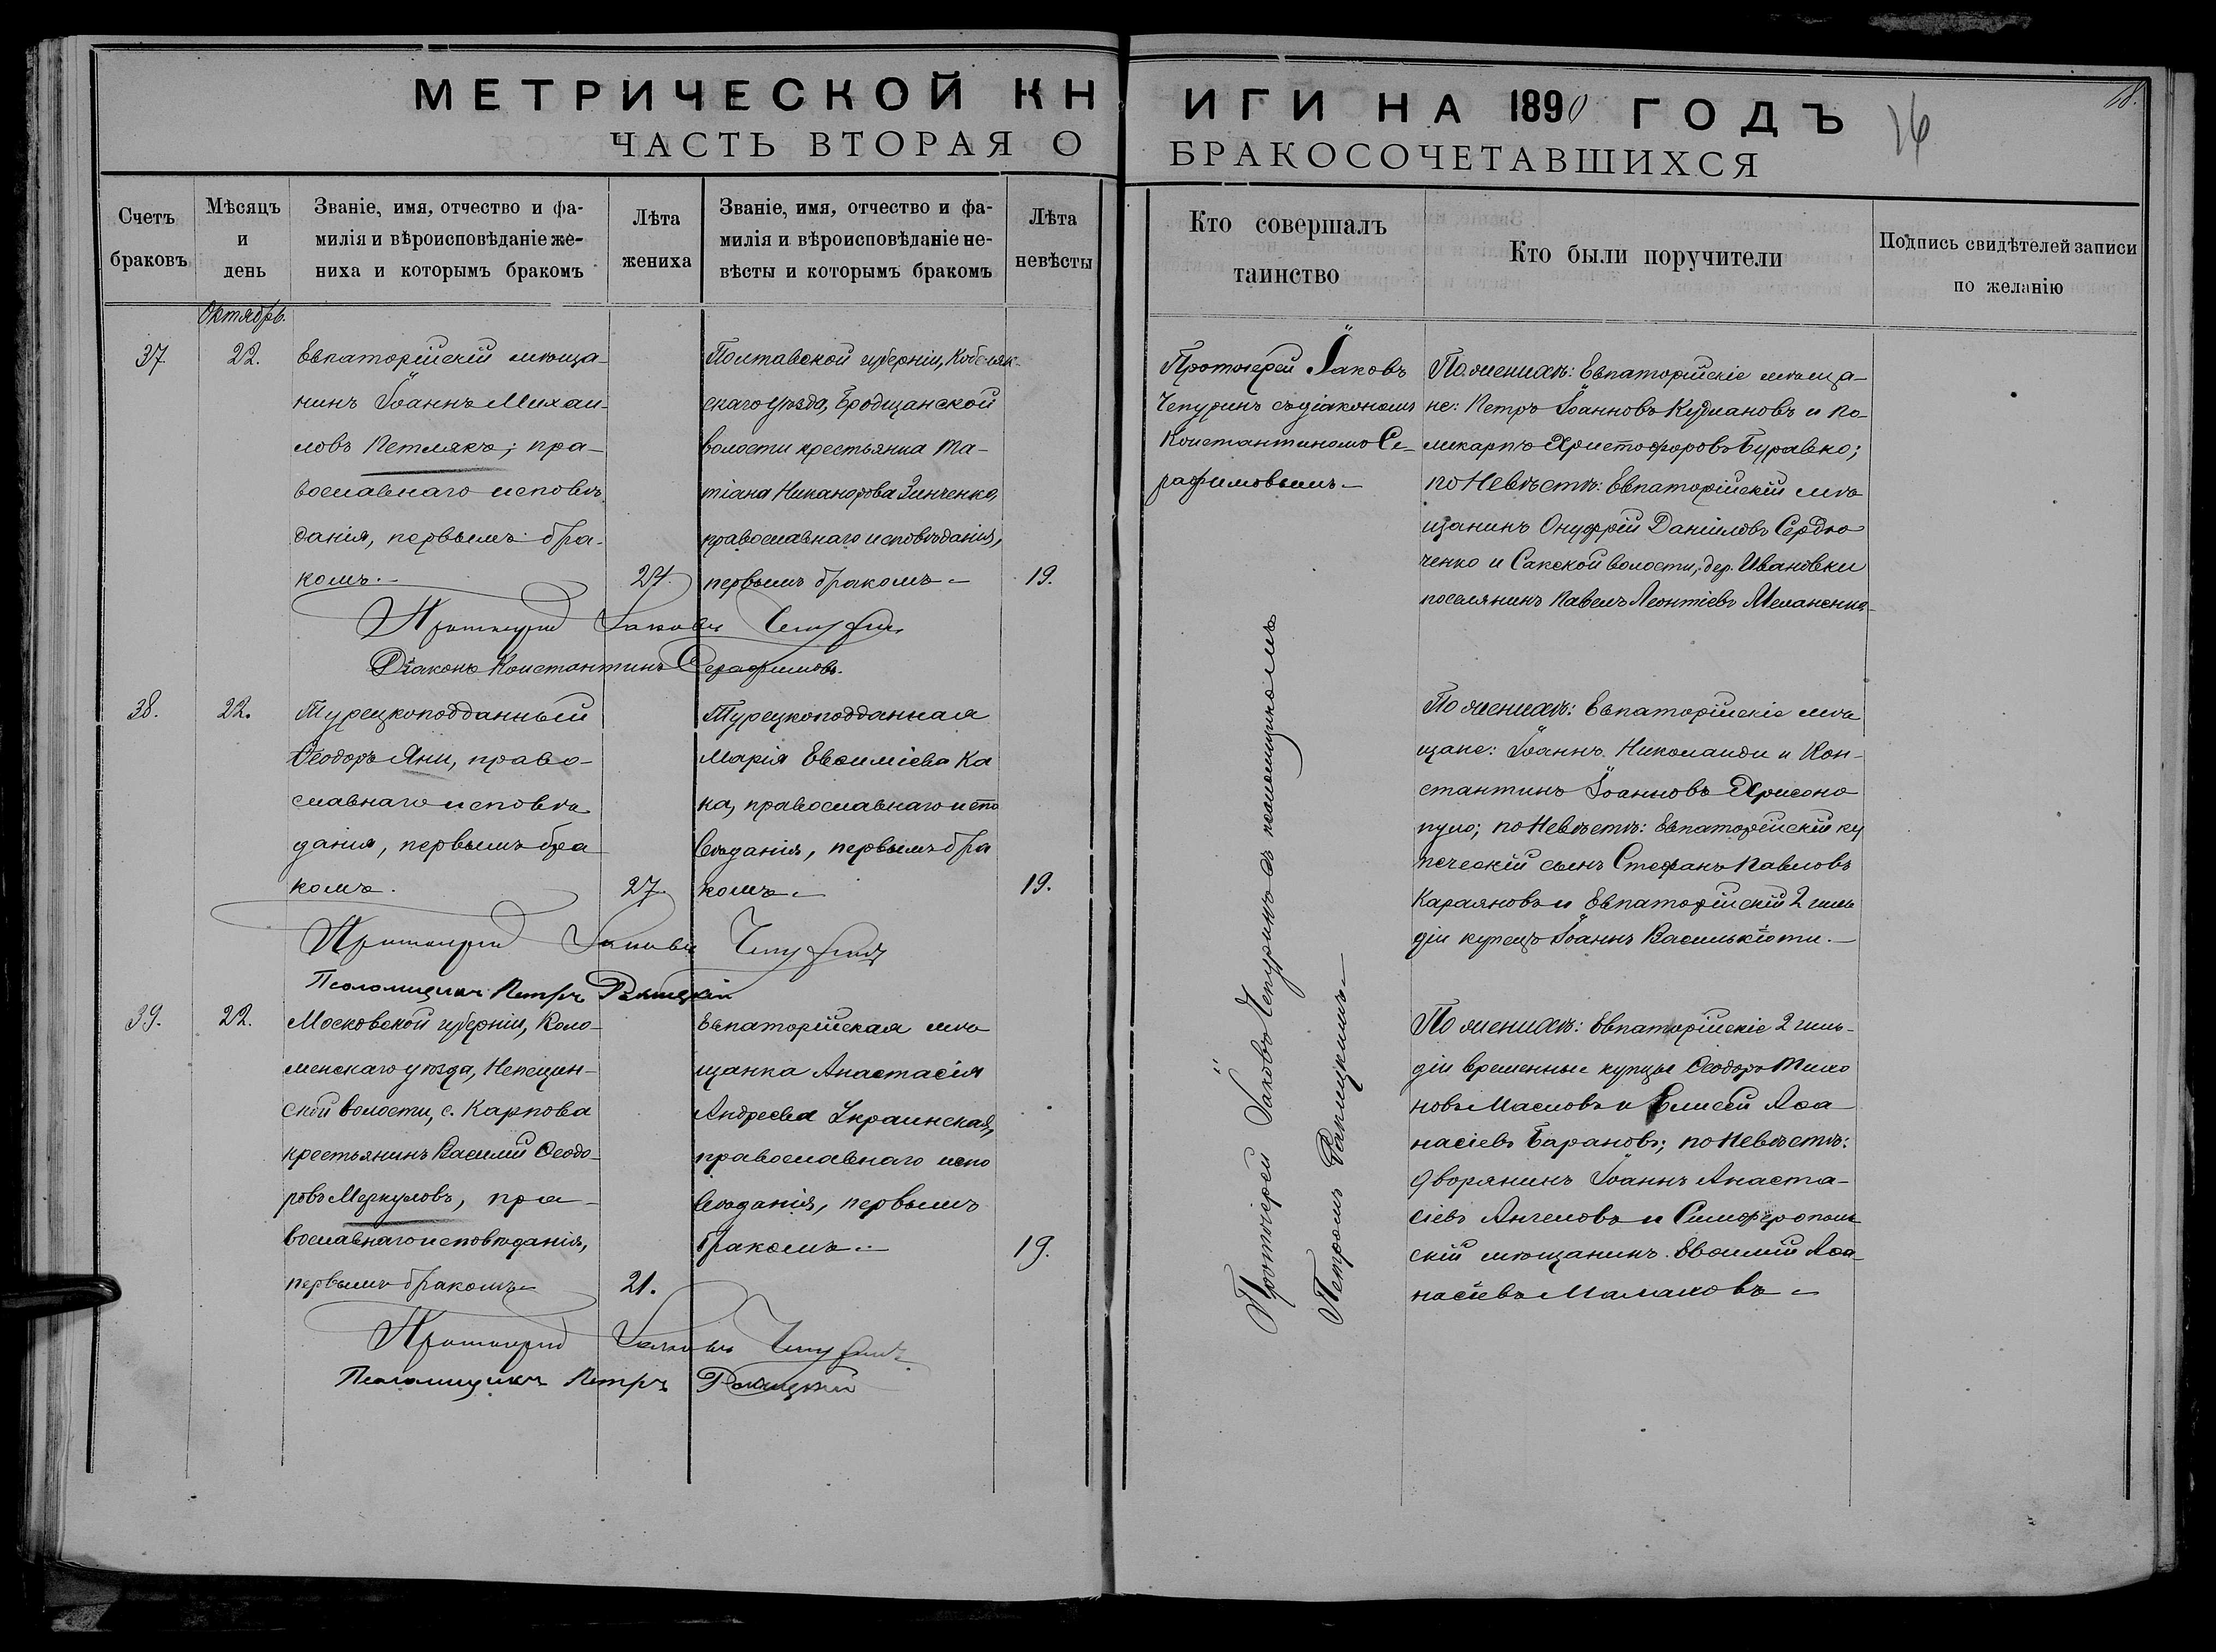 МЕТРИЧЕСКОЙ КНИГИ НА 1890 ГОДЪ
16
18.
ЧАСТЬ ВТОРАЯ О БРАКОСОЧЕТАВШИХСЯ
Счетъ
браковъ
Мѣсяцъ
и
день
Званіе, имя, отчество и фа-
милія и вѣроисповѣданіе же-
ниха и которымъ бракомъ
Лѣта
жениха
Званіе, имя, отчество и фа-
милія и вѣроисповѣданіе не-
вѣсты и которымъ бракомъ
Лѣта
невѣсты
Кто совершалъ
таинство
Кто были поручители
Подпись свидѣтелей записи
по желанію
Октябрь.
37.
22.
Евпаторійскій мѣща-
нинъ Іоаннъ Михаи-
ловъ Петлякъ; пра-
вославнаго исповѣ
данія, первымъ бра-
комъ.-
27.
Полтавской губерніи, Кобеляк-
скаго уѣзда, Бродщанской
волости крестьянка Та-
тіана Никанорова Зинченко,
православнаго исповѣданія,
первымъ бракомъ.-
19.
Протоіерей Іаковъ Чепуринъ
Діаконъ Константинъ Серафимовъ.
Протоіерей Іаковъ
Чепуринъ съ діакономъ
Константиномъ Се-
рафимовымъ.-
По женихѣ: Евпаторійскіе мѣща-
не: Петръ Іоанновъ Курмановъ и По-
ликарпъ Христофоровъ Буравко;
по невѣстѣ: Евпаторійскій мѣ
щанинъ Онуфрій Даніиловъ Сердю
ченко и Сакской волости, дер. Ивановки
поселянинъ Павелъ Леонтіевъ Меланенко-
38.
22.
Турецкоподданный
Ѳеодоръ Яни, право-
славнаго исповѣ-
данія, первымъ бра
комъ.
27.
Турецкоподданная
Марія Евѳиміева Ка
ка, православнаго испо
вѣданія, первымъ бра
комъ.-
19.
Протоіерей Іаковъ Чепуринъ
Псаломщикъ Петръ Ракицкій
По женихѣ: Евпаторійскіе мѣ
щане: Іоаннъ Николаиди и Кон-
стантинъ Іоанновъ Хрисоно
пуло; по невѣстѣ: Евпаторійскій ку
печескій сынъ Стефанъ Павловъ
Караяновъ и Евпаторійскій 2 гиль
діи купецъ Іоаннъ Василькіоти.-
39.
22.
Московской губерніи, Коло-
менскаго уѣзда, Непецин-
ской волости, с. Карпова
крестьянинъ Василій Ѳеодо-
ровъ Меркуловъ, пра-
вославнаго исповѣданія,
первымъ бракомъ.-
21.
Евпаторійская мѣ
щанка Анастасія
Андреева Украинская,
православнаго испо
вѣданія, первымъ
бракомъ.-
19.
Протоіерей Іаковъ Чепуринъ
Псаломщикъ Петръ Ракицкій
Протоіерей Іаковъ Чепуринъ съ псаломщикомъ
Петромъ Ракицкимъ.-
По женихѣ: Евпаторійскіе 2 гиль-
діи временные купцы Ѳеодоръ Тихо
новъ Масловъ и Елисей Аѳа-
насіевъ Барановъ; по невѣстѣ:
дворянинъ Іоаннъ Анаста-
сіевъ Ангеловъ и Симферополь
скій мѣщанинъ Евѳимій Аѳа-
насіевъ Малаховъ.-